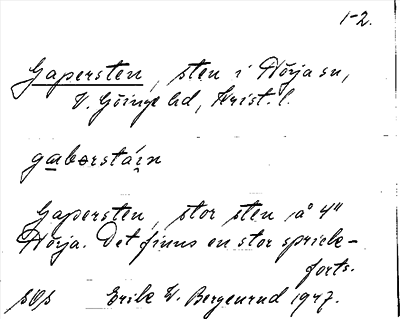 1-2.
Gapersten, sten i Hörja sn,
V. Göinge hd, Krist. l.
gabərstáin
Gapersten, stor sten å 4"
Hörja. Det finns en stor sprick-
forts.
Erik W. Bergenrud 1927.